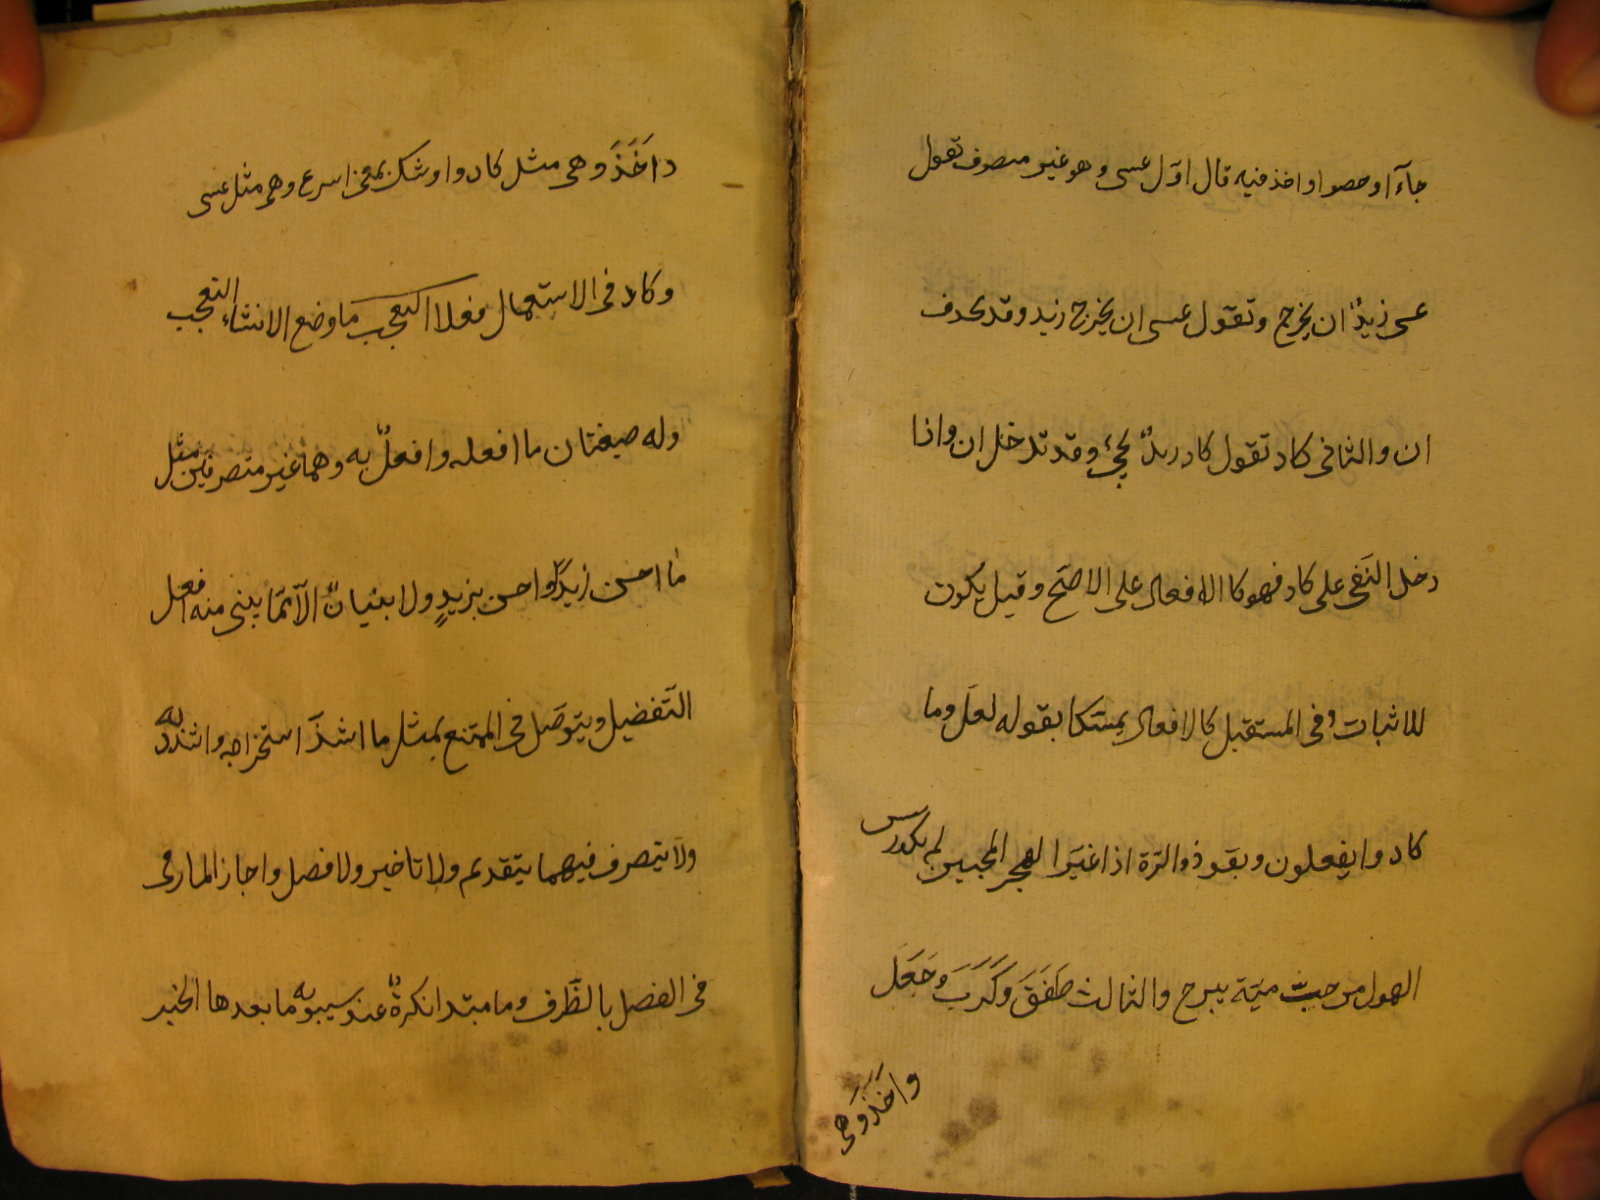 جآء او حصوا او اخذ فيه قال اوّل عسى وهو غير متصرف تقول
عسى زيدٌ ان يخرج وتقول عسى ان يخرج زيد وقد تحذف
ان والثانى كاد تقول كاد زيدٌ يجئ وقد تدخل ان واذا
دخل النّفى على كاد فهو كا الافعال على الاصّح وقيل يكون
للاثبات وفى المستقبل كالافعال بمتسكا بقوله لعلّ وما
كادوا يفعلون وبقو ذوالرّة اذا غيّرا لهجر المحبين لم يكد رس
الهول من حبّ ميّة يبرح والثالث طَفَقَ وَكَرَبَ وَجَعَلَ
واَخَذَ وهى
داَخَذَ وهى مثل كاد واوشك بمعنى اسرع وهى مثل عسى
وكاد فى الاستعمال فعلا التعجب مَا وضع الانشاء التعجب
وله صيغتان ما افعله وافعلٌ به وهما غير متصرفين مثل
مٰا احسن زيدًا واحسن بزيدٍ ولا يبنيانٌ الاّ ممّا يبنى منه افعل
التّفضيل ويتوصّل فى الممتنع بمثل ما اشدّ استخراجه واشدد به
ولا يتصرف فيهما بتقديم ولا تاخير ولا فصل واجاز المازنى
فى الفصل بالظّرف وما مبتدا نكرةٌ عند سيبويه ما بعدها الخبر